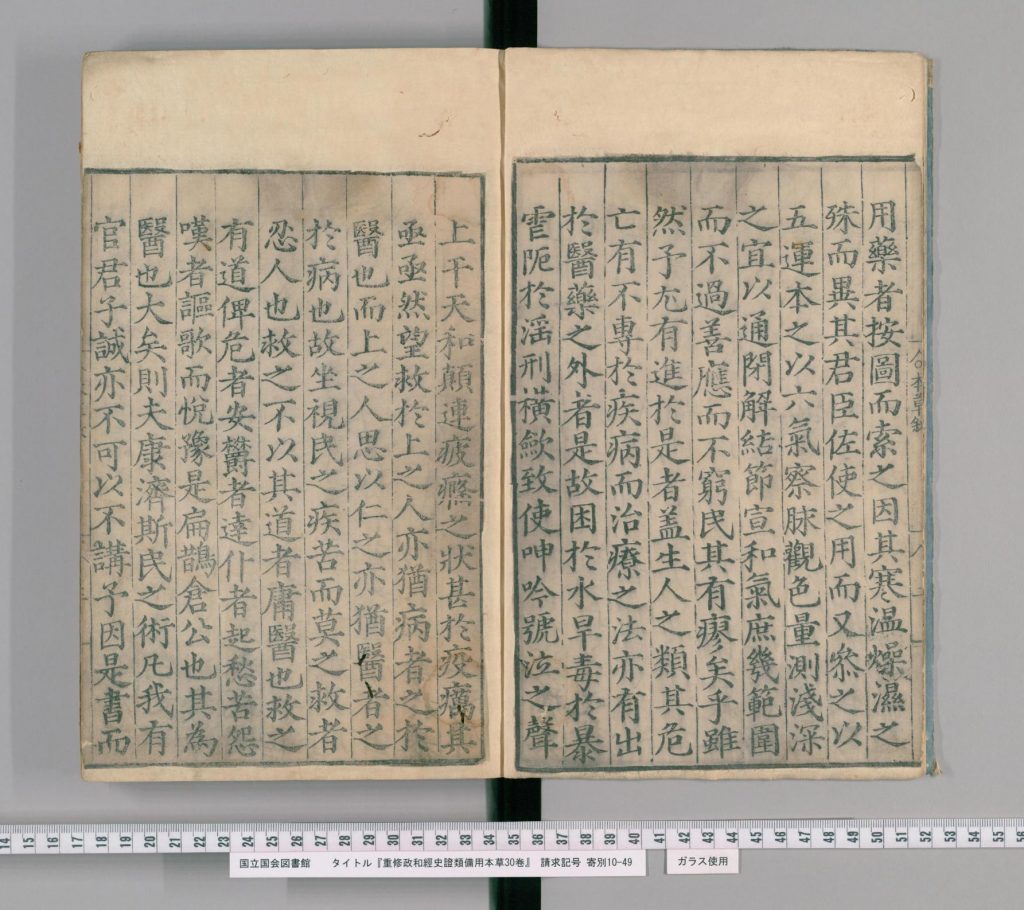 用藥者按圖而索之因其寒温燥濕之
殊而異其君臣佐使之用而又叅之以
五運本之以六氣察脉觀色量測淺深
之宜以通閉解結節宣和氣庶幾範圍
而不過善應而不窮民其有瘳矣乎雖
然予尢有進於是者盖生人之類其危
亡有不專於疾病而治療之法亦有出
於醫藥之外者是故困於水旱毒於暴
雪阨於滛刑橫歛致使呻吟號泣之聲
上干天和顛連疲癃之狀甚於疫癘其
亟亟然望救於上之人亦猶病者之於
醫也而上之人思以仁之亦猶醫者之
於病也故坐視民之疾苦而莫之救者
忍人也救之不以其道者庸醫也救之
有道俾危者安欝者達仆者起愁苦怨
嘆者謳歌而悅豫是扁鵲倉公也其為
醫也大矣則夫康濟斯民之術凡我有
官君子誠亦不可以不講予因是書而
国立国会図書館 タイトル『重修政和經史證類備用本草30巻』 請求記号 寄別10-49
ガラス使用
14 15 16 17 18 19 20 21 22 23 24 25 26 27 28 29 30 31 32 33 34 35 36 37 38 39 40 41 42 43 44 45 46 47 48 49 50 51 52 53 54 55 56